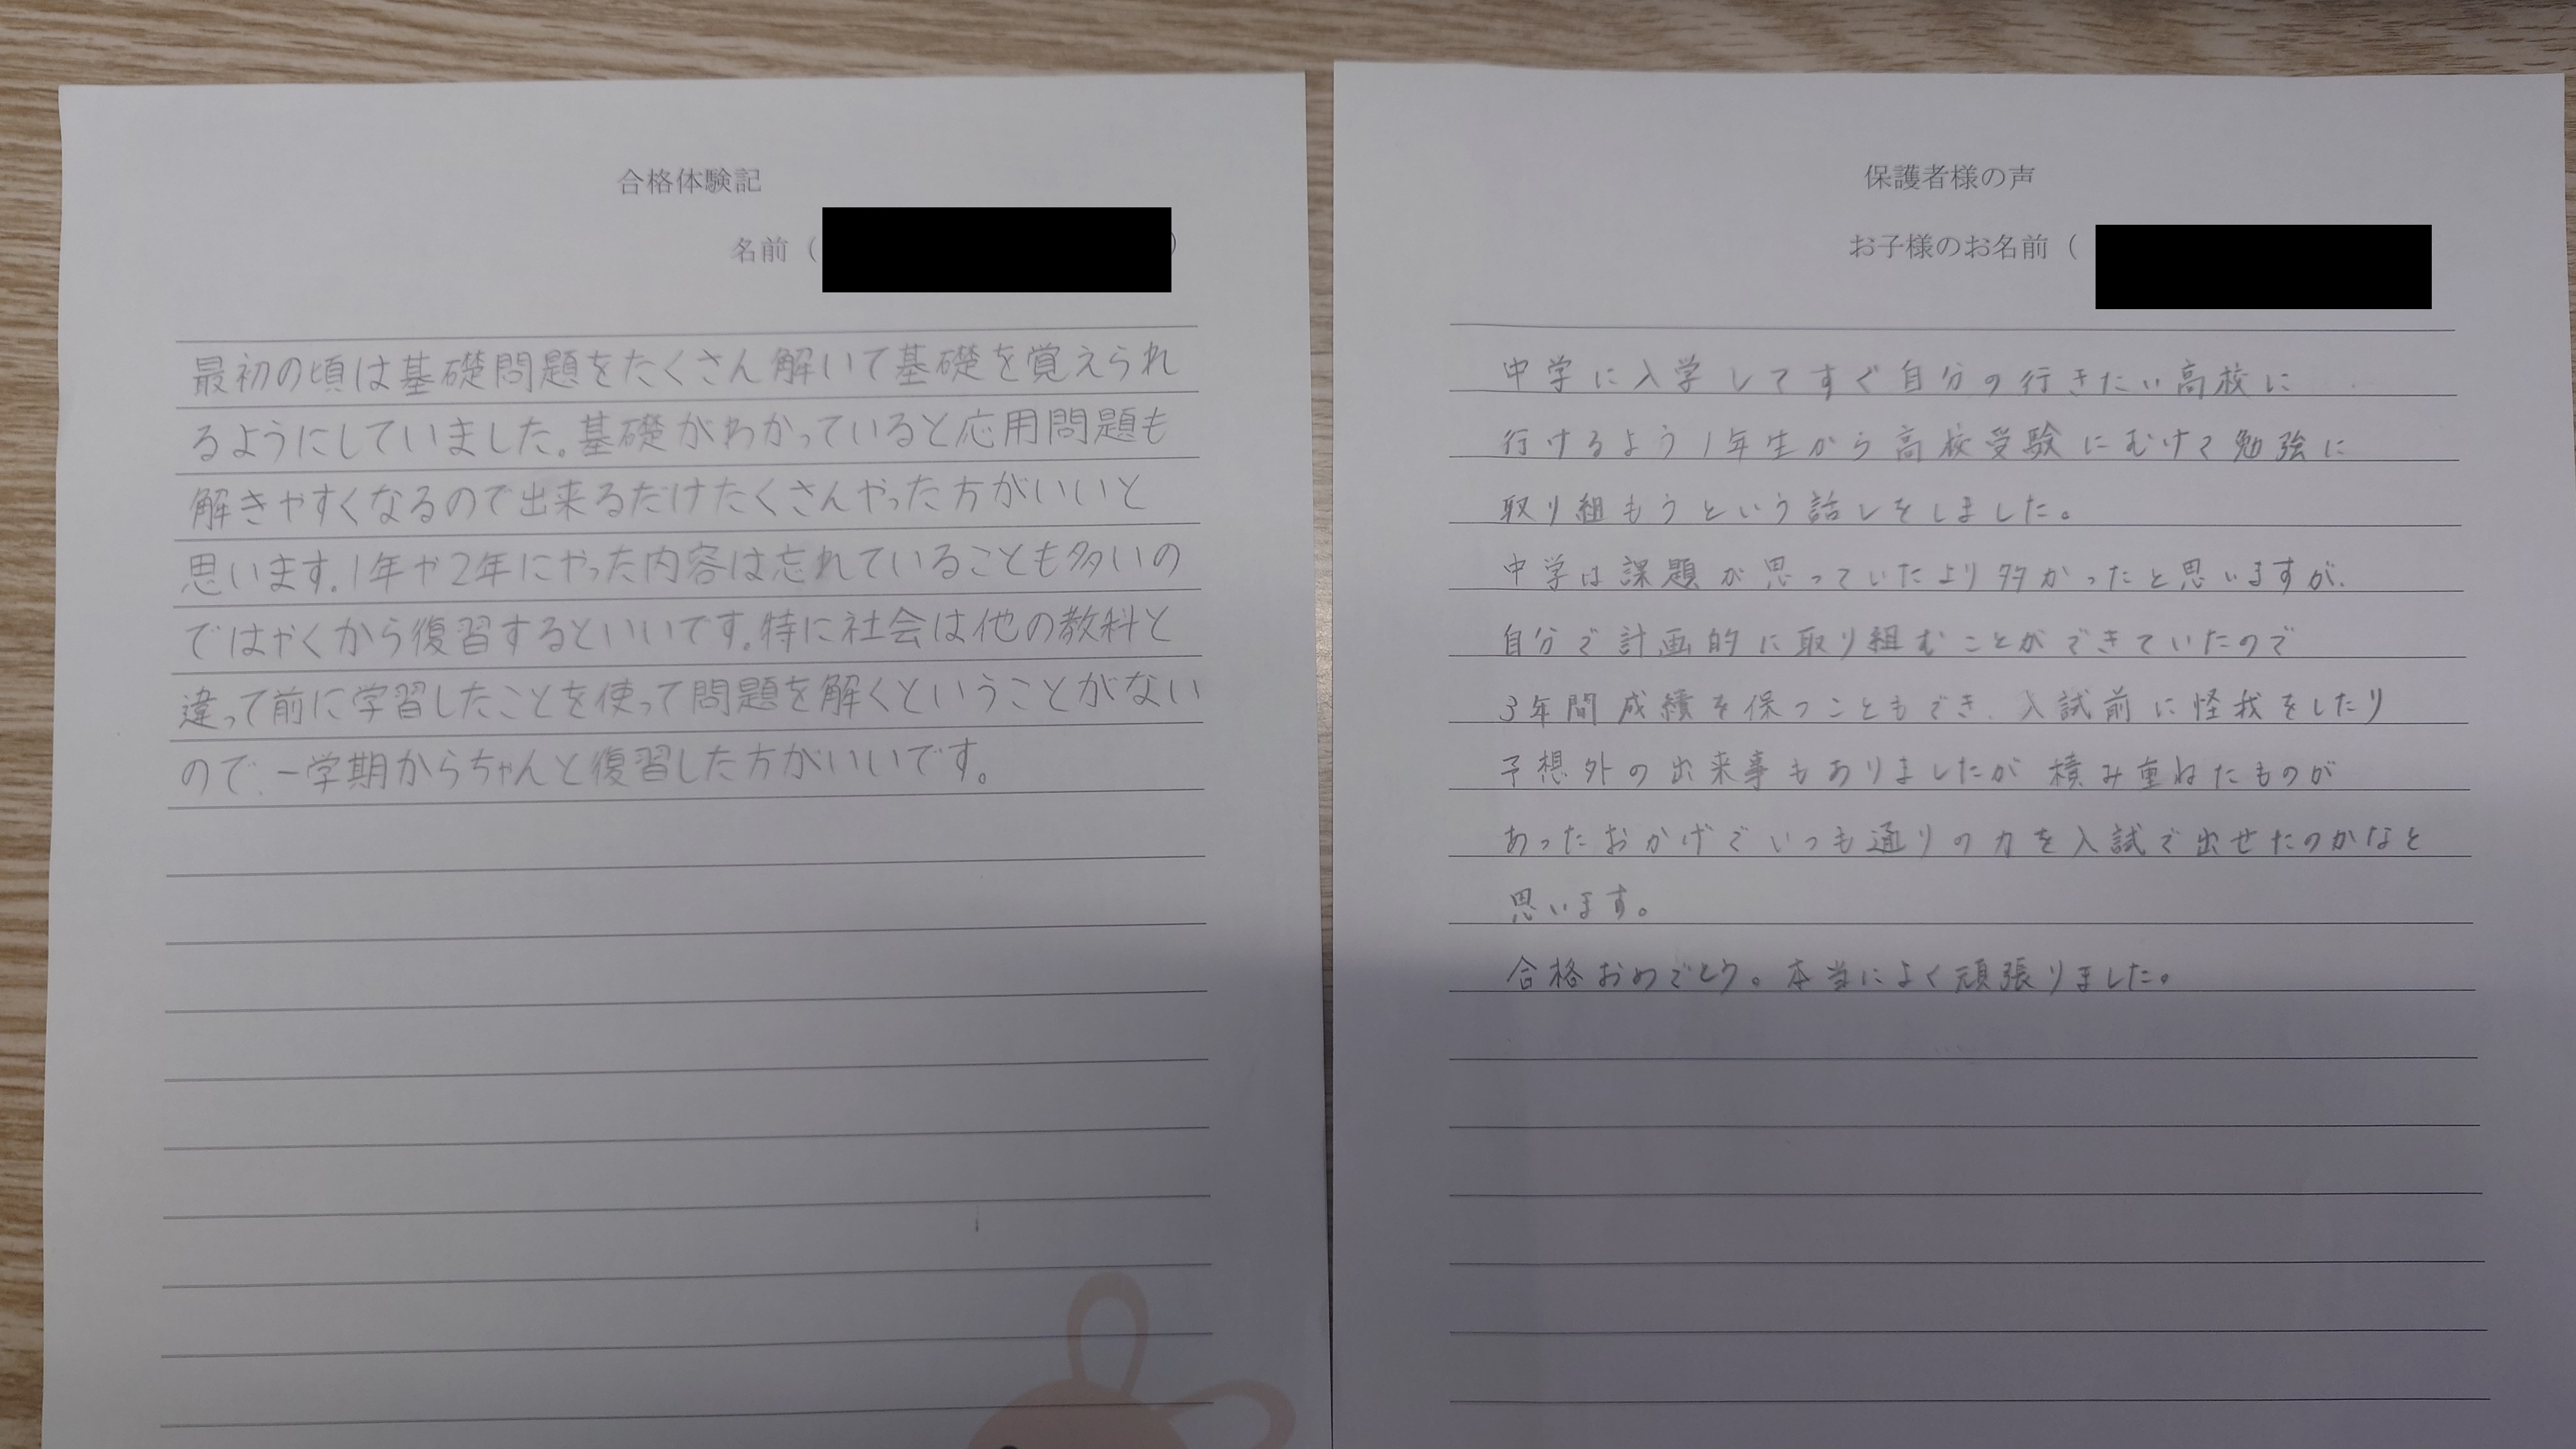 合格体験記
名前（　）
最初の頃は基礎問題をたくさん解いて基礎を覚えられ
るようにしていました。基礎がわかっていると応用問題も
解きやすくなるので出来るだけたくさんやった方がいいと
思います。1年や2年にやった内容は忘れていることも多いの
ではやくから復習するといいです。特に社会は他の教科と
違って前に学習したことを使って問題を解くということがない
ので、一学期からちゃんと復習した方がいいです。
保護者様の声
お子様のお名前（
中学に入学してすぐ自分の行きたい高校に
行けるよう1年生から高校受験にむけて勉強に
取り組もうという話しをしました。
中学は課題が思っていたより多かったと思いますが、
自分で計画的に取り組むことができていたので
3年間成績を保つこともでき、入試前に怪我をしたり
予想外の出来事もありましたが積み重ねたものが
あったおかげでいつも通りの力を入試で出せたのかなと
思います。
合格おめでとう。本当によく頑張りました。